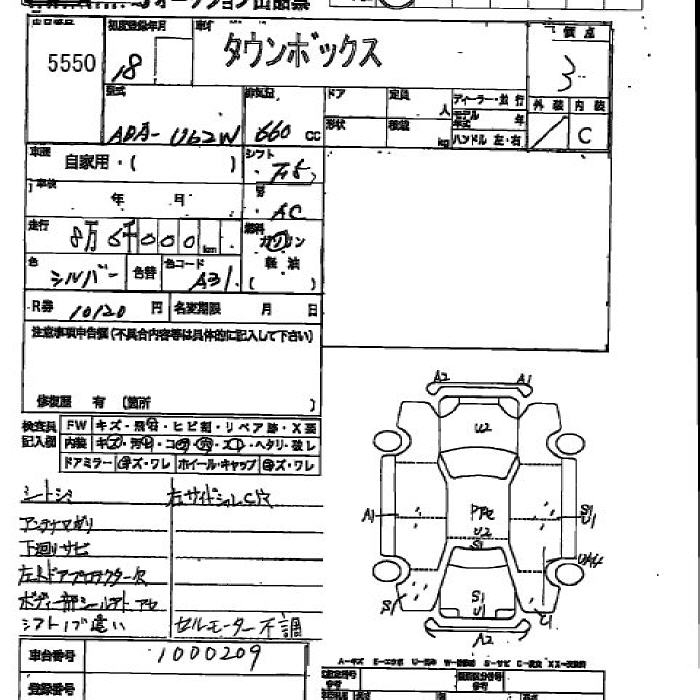 オークション出品票
出品番号 初度登録年月 車名 評価点
5550 18 タウンボックス 3
型式 排気量 ドア 定員 人 ディーラー・並行 外装 内装
ADA-U62W 660 cc 形状 積載 kg モデル年式 年 C
ハンドル 左・右
車歴 自家用・( ) シフト F5
車検 年 日 AC
走行 8万6千000km 燃料 ガソリン
色 シルバー 色替 色コード A31 軽油
( )
R券 10120 円 名変期限 月 日
注意事項申告欄(不具合内容等は具体的に記入して下さい)
修復歴 有 (箇所 )
検査員 FW キズ・飛石・ヒビ割・リペア跡・X要
記入欄 内装 キズ・汚レ・コゲ・穴・スレ・ヘタリ・破レ
ドアミラー キズ・ワレ ホイール・キャップ キズ・ワレ
シートシミ 右サイドシルC穴
アンテナマガリ
下廻りサビ
左ドアプロテクター欠
ボディ一部シールアト アセ
シフト1ブ違い セルモーター不調
車台番号 1000209
登録番号
A2 A1
U2
A1 PAE S1
U1
U2
S1
UA4
S1 S1
U1
C1
A2
A-キズ E-エクボ U-凹ミ W-補修跡 S-サビ C-腐食 XX-交換済